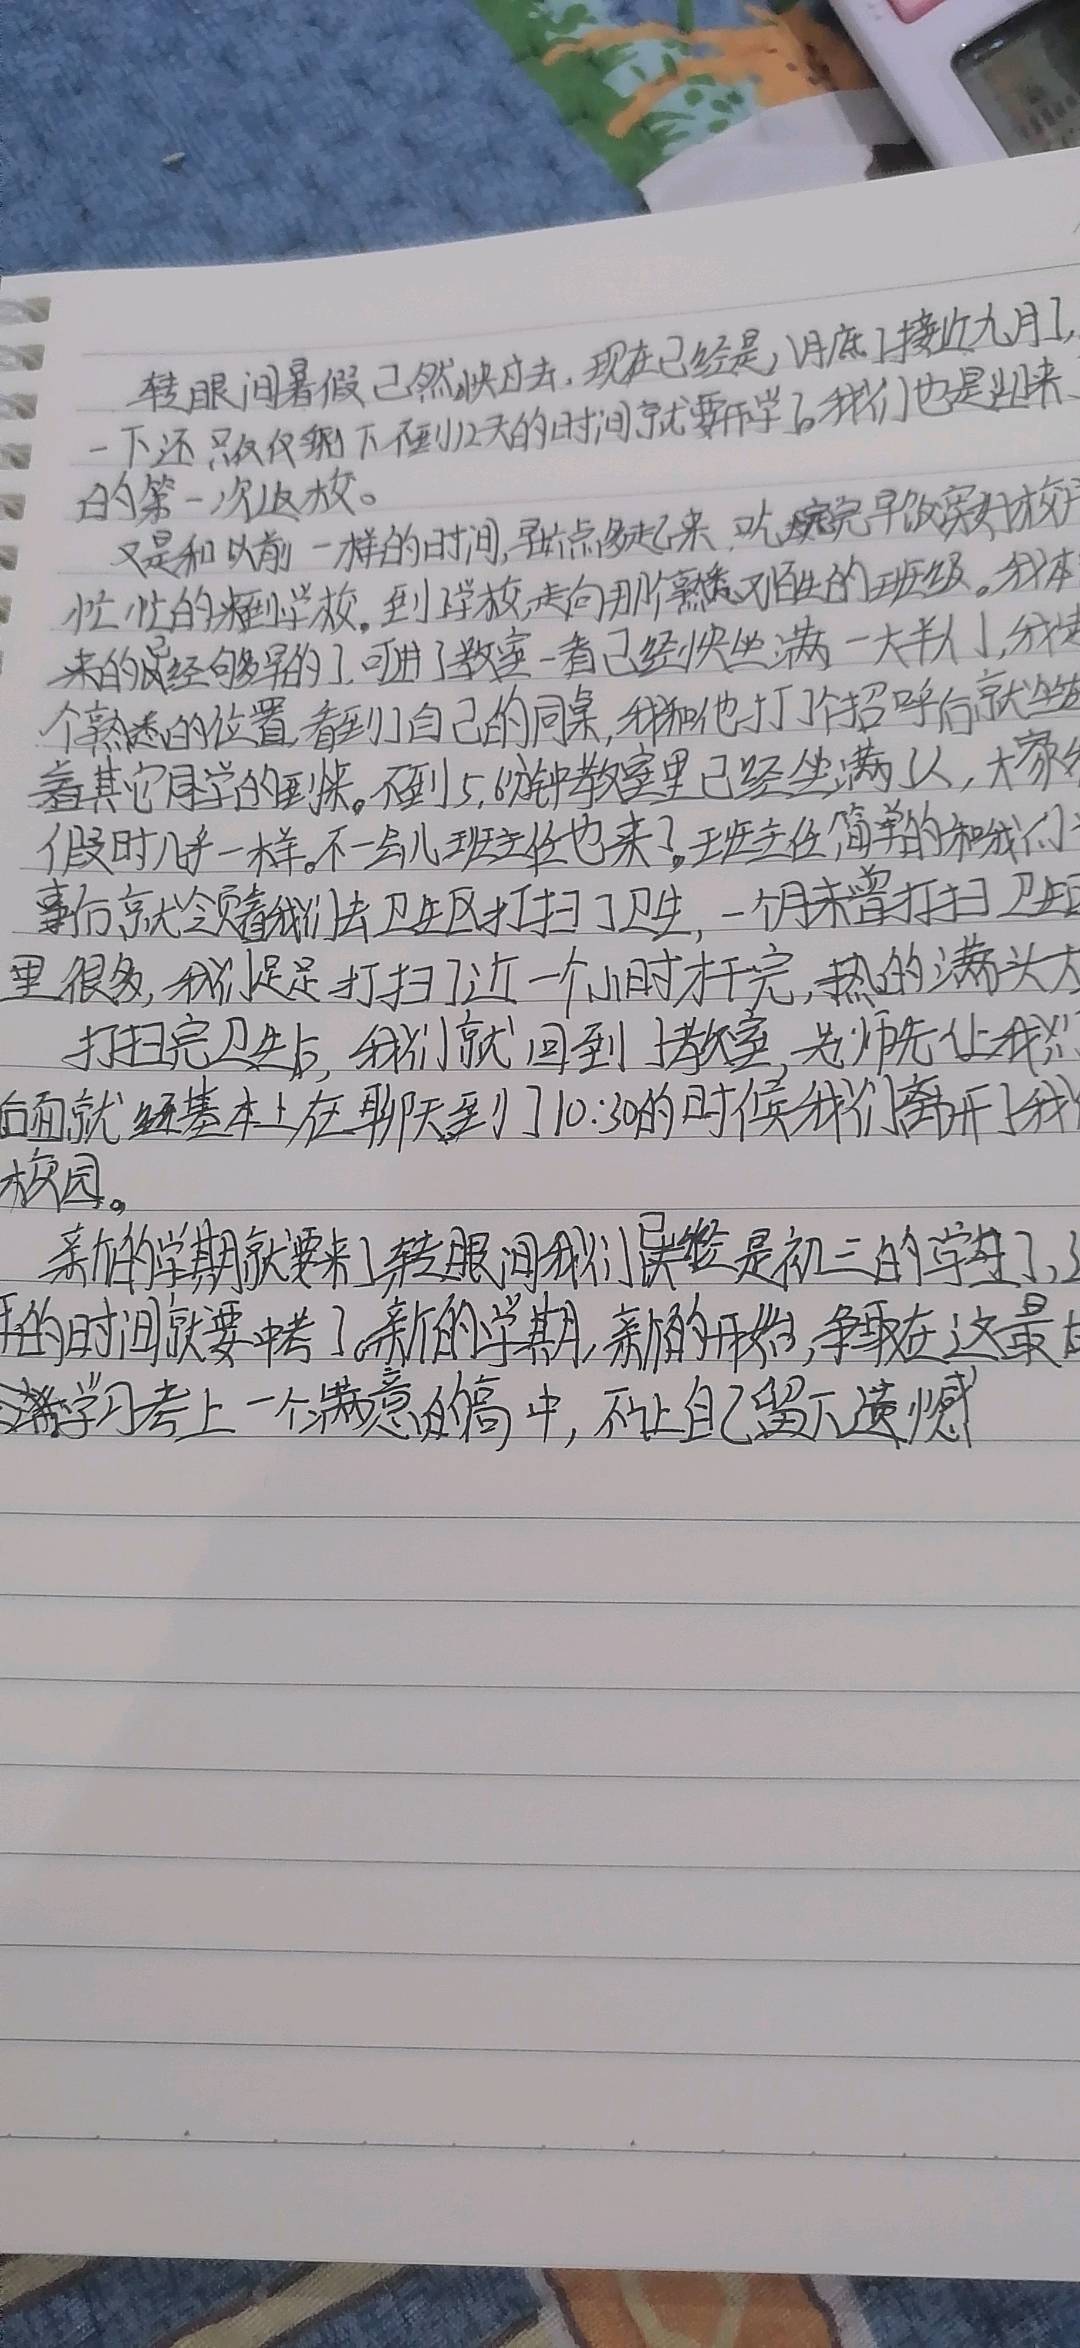 转眼间暑假已然快过去,现在已经是八月底了接近九月了,
一下还只仅仅剩下不到12天的时间就要开学了。我们也是迎来
的第一次返校。
又是和以前一样的时间,早点多起来,吃完早饭穿好校
忙忙的来到学校。到了学校,走向那个熟悉又陌生的班级。我本
来的已经够早的了,可进了教室一看已经快坐满一大半人了,我走
个熟悉的位置,看到了自己的同桌,我和他打了个招呼后就坐
着其它同学的到来。不到5,6分钟教室里已经坐满了人,大家
假时几乎一样。不一会儿班主任也来了。班主任简单的和我们
事后就领着我们去卫生区打扫了卫生,一个月未曾打扫卫生区
里很多,我们足足打扫了近一个小时才干完,热的满头大
打扫完卫生后,我们就回到了教室,老师先让我们
后面就基本上在聊天到了10:30的时候我们离开了我们
校园。
新的学期就要来了转眼间我们已经是初三的学生了,
年的时间就要中考了。新的学期,新的开始,争取在这最
学习考上一个满意的高中,不让自己留下遗憾